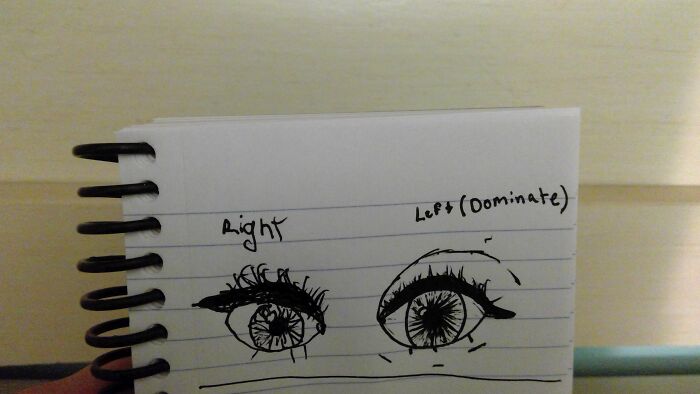 Right
Left (Dominate)